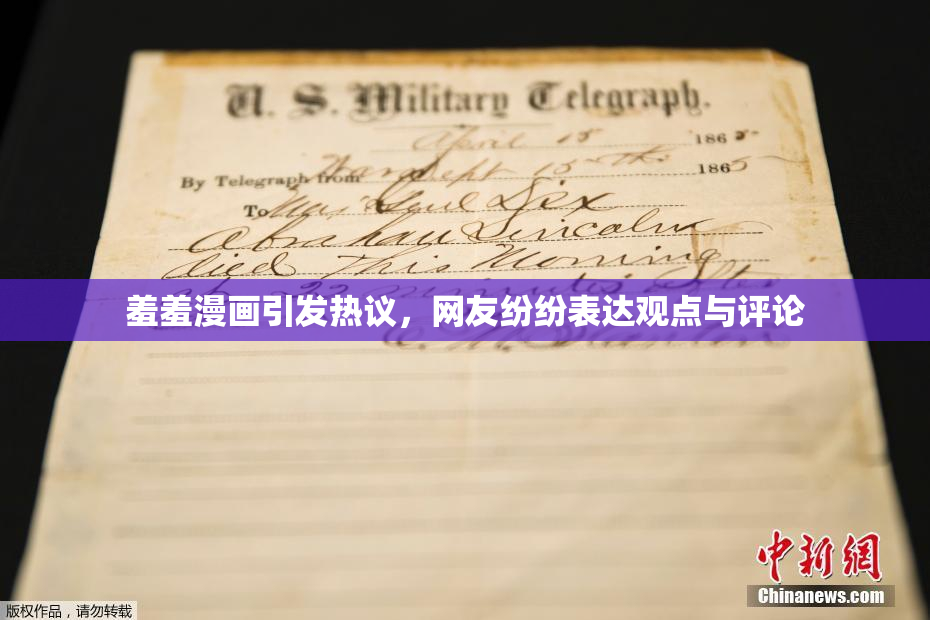 U. S. Military Telegraph.
April 15 1865
By Telegraph from War Dept 15th 1865
To Maj Genl Dix
Abraham Lincoln
died This Morning
at 22 minutes after
羞羞漫画引发热议，网友纷纷表达观点与评论
E. M. Stanton
中新网
Chinanews.com
版权作品，请勿转载